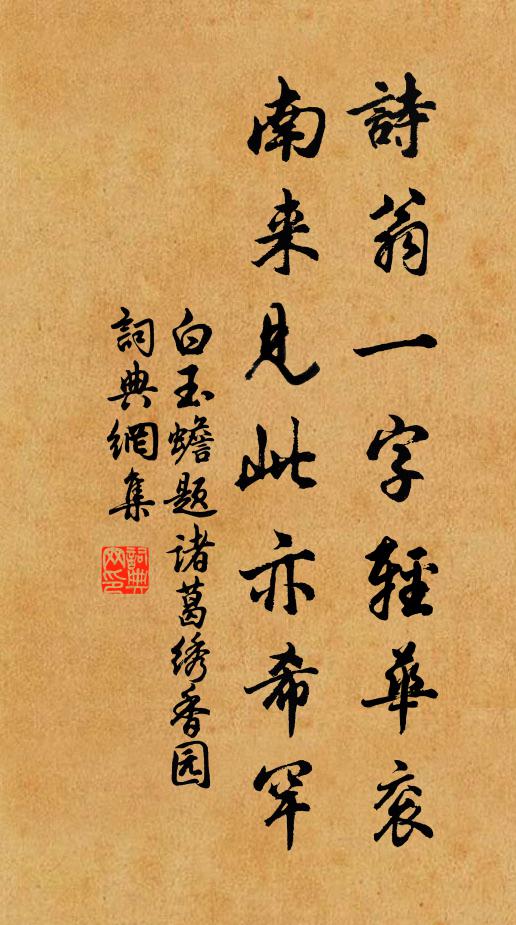 詩翁一字輕華衮
南来見此亦希罕
白玉蟾題诸葛绣香园
詞典網集
詞典網印